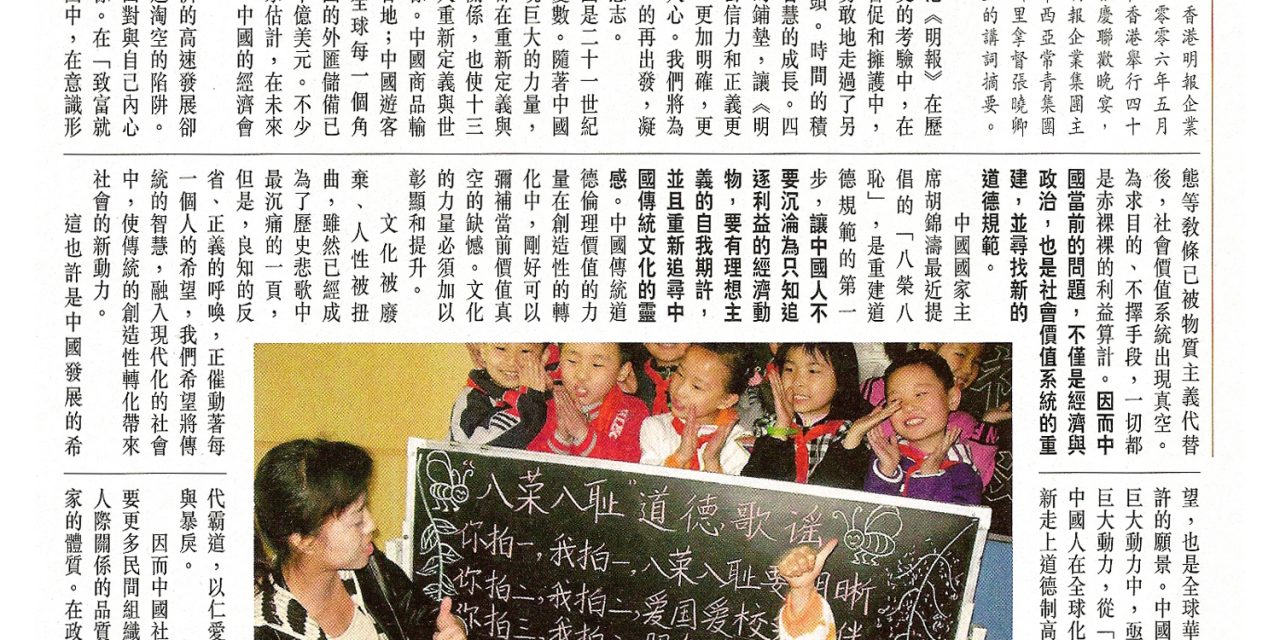 香港明報企業
零零六年五月
香港舉行四十
慶聯歡晚宴，
報企業集團主
西亞常青集團
里拿督張曉卿
的講詞摘要。
《明報》在歷
的考驗中，在
督促和擁護中，
勇敢地走過了另
頭。時間的積
智慧的成長。四
的鋪墊，讓《明
信力和正義更
更加明確，更
人心。我們將為
的再出發，凝
意志。
是二十一世紀
變數。隨著中國
現巨大的力量，
在重新定義與
關係，也使十三
人重新定義與世
。中國商品輸
全球每一個角
各地；中國遊客
的外匯儲備已
億美元。不少
估計，在未來
中國的經濟會
的高速發展卻
過淘空的陷阱。
面對與自己內心
。在「致富就
中，在意識形
態等教條已被物質主義代替
後，社會價值系統出現真空。
為求目的、不擇手段，一切都
是赤裸裸的利益算計。因而中
國當前的問題，不僅是經濟與
政治，也是社會價值系統的重
建，並尋找新的
道德規範。
中國國家主
席胡錦濤最近提
倡的「八榮八
恥」，是重建道
德規範的第一
步，讓中國人不
要沉淪為只知追
逐利益的經濟動
物，要有理想主
義的自我期許，
並且重新追尋中
國傳統文化的靈
感。中國傳統道
德倫理價值的力
量在創造性的轉
化中，剛好可以
彌補當前價值真
空的缺憾。文化
的力量必須加以
彰顯和提升。
文化被廢
棄、人性被扭
曲，雖然已經成
為了歷史悲歌中
最沉痛的一頁，
但是，良知的反
省、正義的呼喚，正催動著每
一個人的希望，我們希望將傳
統的智慧，融入現代化的社會
中，使傳統的創造性轉化帶來
社會的新動力。
這也許是中國發展的希
望，也是全球華
許的願景。中國
巨大動力中，亟
巨大動力，從「
中國人在全球化
新走上道德制高
代霸道，以仁愛
與暴戾。
因而中國社
要更多民間組織
人際關係的品質
家的體質。在政
"八荣八耻"道德歌谣
你拍一，我拍一，八荣八耻要明晰
你拍二，我拍二，爱国爱校
你拍三，我拍三，